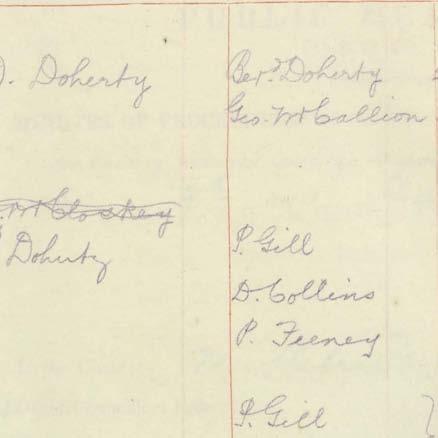 J. Doherty
Ber.d Doherty
Geo. McCallion
McCloskey
Doherty
P. Gill
D. Collins
P. Feeney
P. Gill